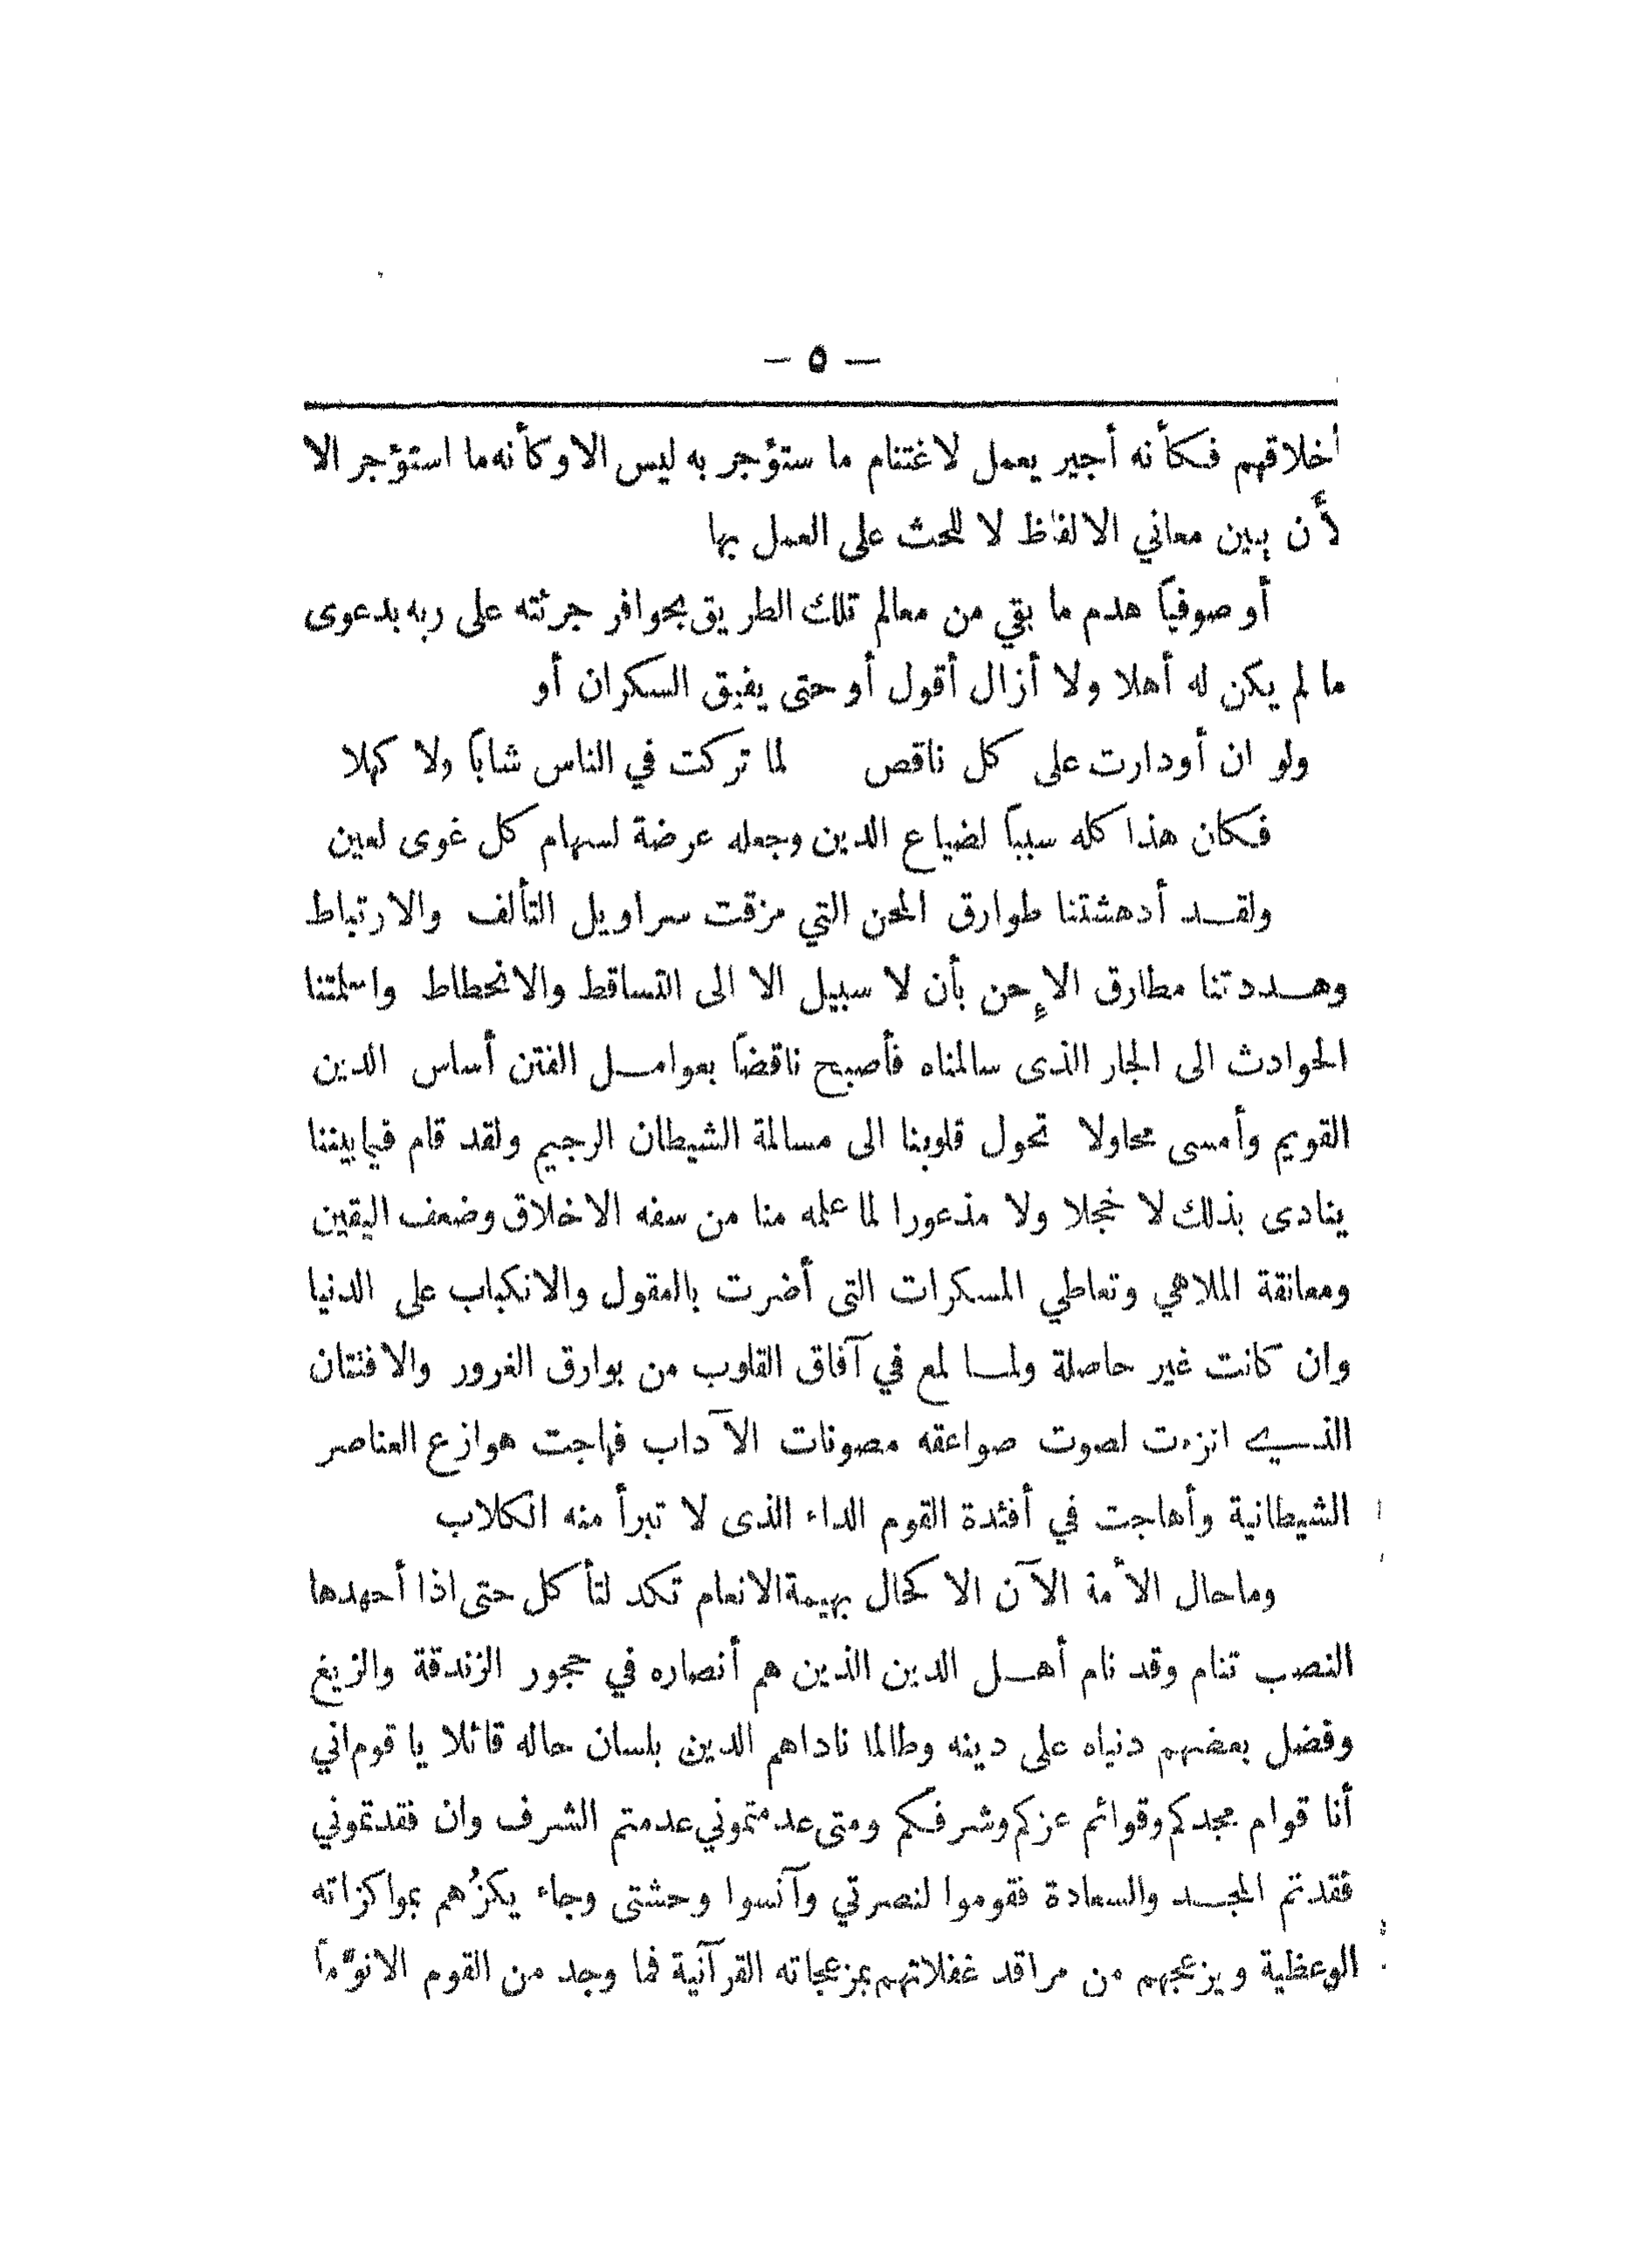 — ٥ —
أخلاقهم فكأنه أجير يعمل لاغتنام ما ستؤجر به ليس الا وكأنه ما استؤجر الا
لأن يبين معاني الالفاظ لا للحث على العمل بها
أو صوفياً هدم ما بقي من معالم تلك الطريق بحوافر جرئته على ربه بدعوى
ما لم يكن له أهلا ولا أزال أقول أو حتى يفيق السكران أو
ولو ان أودارت على كل ناقص لما تركت في الناس شاباً ولا كهلا
فكان هذا كله سبباً لضياع الدين وجعله عرضة لسهام كل غوى لعين
ولقد أدهشتنا طوارق المحن التي مزقت سراويل التألف والارتباط
وهددتنا مطارق الإحن بأن لا سبيل الا الى التساقط والانحطاط واسلمتنا
الحوادث الى الجار الذى سالمناه فأصبح ناقضاً بعوامل الفتن أساس الدين
القويم وأمسى محاولا تحول قلوبنا الى مسالمة الشيطان الرجيم ولقد قام فيما بيننا
ينادى بذلك لا خجلا ولا مذعورا لما علمه منا من سفه الاخلاق وضعف اليقين
ومعانقة الملاهي وتعاطي المسكرات التى أضرت بالعقول والانكباب على الدنيا
وان كانت غير حاصلة ولما لمع في آفاق القلوب من بوارق الغرور والافتتان
الذي لصوت صواعقه مصونات الآداب فهاجت هوازع العناصر
الشيطانية وأهاجت في أفئدة القوم الداء الذى لا تبرأ منه الكلاب
وما حال الأمة الآن الا كحال بهيمة الانعام تكد لتأكل حتى اذا أجهدها
النصب تنام وقد نام أهل الدين الذين هم أنصاره في حجور الزندقة والزيغ
وفضل بعضهم دنياه على دينه وطالما ناداهم الدين بلسان حاله قائلا يا قوم اني
أنا قوام مجدكم وقوائم عزكم وشرفكم ومتى عدمتموني عدمتم الشرف وان فقدتموني
فقدتم المجد والسعادة فقوموا لنصرتي وآنسوا وحشتى وجاء يكزُهم بمواكزاته
الوعظية ويزعجهم من مراقد غفلاتهم بمزعجاته القرآنية فما وجد من القوم الا نوَّماً